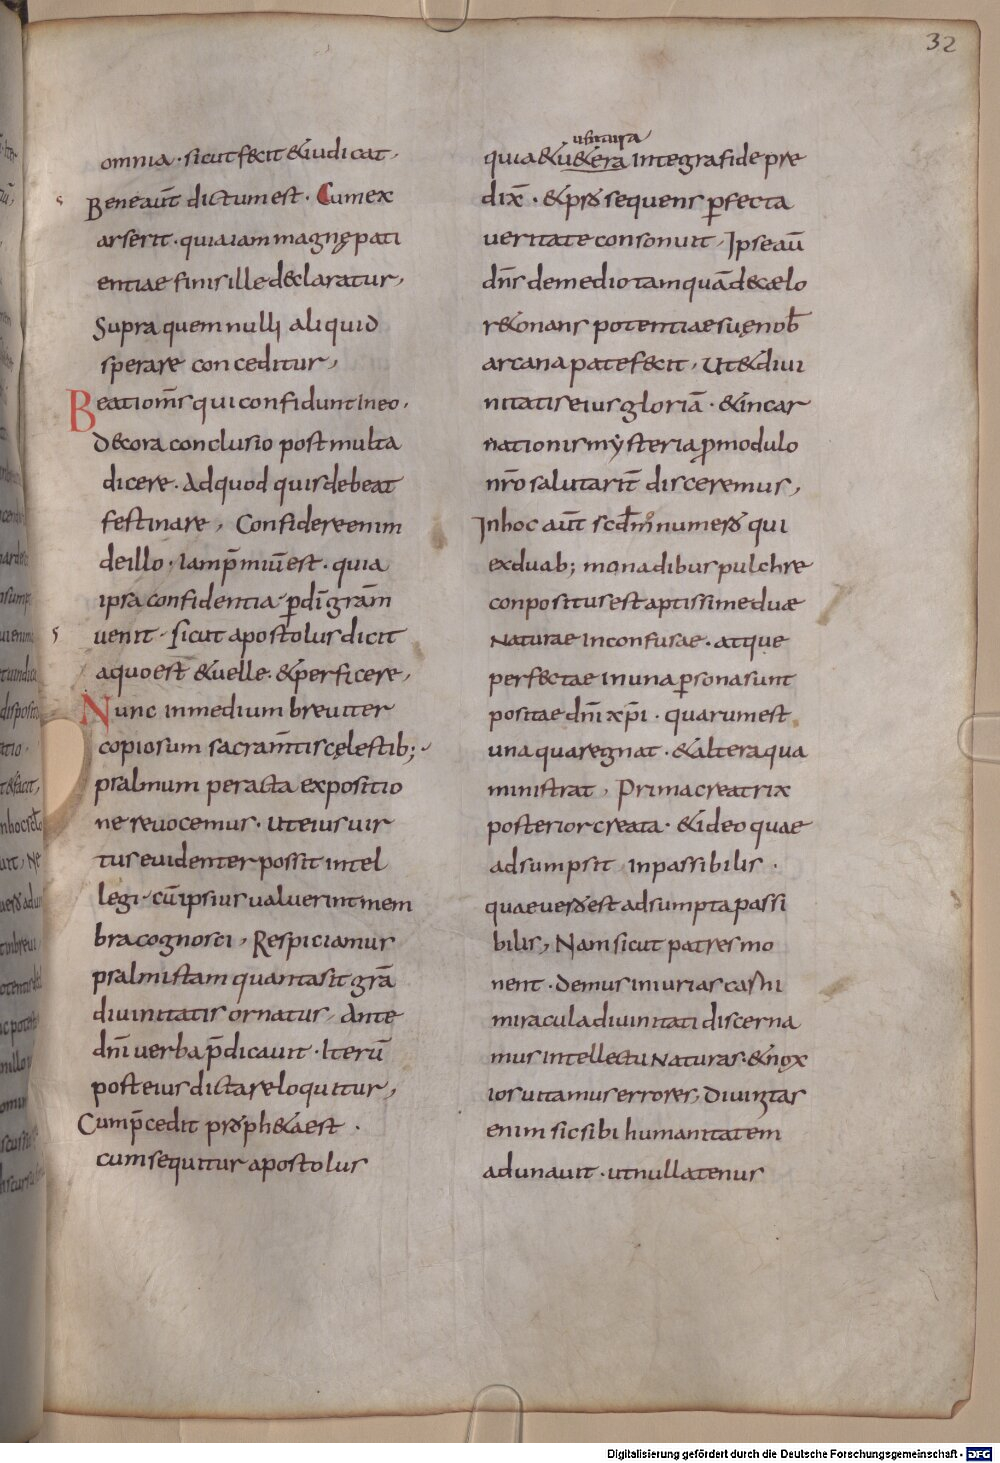 32
omnia · sicut fecit & iudicat ·
Bene aut̄ dictum est · Cum ex
arserit · quia iam magnę pati
entiae finis ille declaratur,
Supra quem nulli aliquid
sperare conceditur,
Beati om̄s qui confidunt in eo ·
Decora conclusio post multa
dicere · Ad quod quis debeat
festinare, Confidere enim
de illo · Iam p̄miū est · quia
ipsa confidentia · p̱ dī grām
uenit · sicut apostolus dicit
a quo est & uelle · & perficere,
Nunc in medium breuiter
copiosum sacram̄tis cęlestib;
psalmum peracta expositio
ne reuocemus · Ut eius uir
tus euidenter possit intel
legi · cū ipsius ualuerint mem
bra cognosci, Respiciamus
psalmistam quanta sit grā
diuinitatis ornatus, Ante
dn̄i uerba p̄dicauit · Iterū
post eius dicta reloquitur,
Cum p̄cedit proph&a est ·
cum sequitur apostolus
uentura
quia & u&era integra fide pre
dix̄ · & prosequens p̱fecta
ueritate consonuit, Ipse aū
dn̄s de medio tamquā de cælo
r&onans potentiae suę nob̄
arcana patefecit, Ut & diui
nitatis eius gloriā · & incar
nationis mẏsteria p̱ modulo
nr̄o salutarit̄ disceremus,
In hoc aūt scd̄o numero qui
ex duab; monadibus pulchre
conpositus est aptissime duæ
Naturae inconfusae · atque
perfectae in una p̱sona sunt
positae dn̄i xp̄i · quarum est
una qua regnat · & altera qua
ministrat, Prima creatrix
posterior creata · & ideo quae
adsumpsit inpassibilis ·
quae uero est adsumpta passi
bilis, Nam sicut patres mo
nent · demus iniurias carni
miracula diuinitati discerna
mus intellectu Naturas · & nox
ios uitamus errores, Diuinitas
enim sic sibi humanitatem
adunauit · ut nullatenus
Digitalisierung gefördert durch die Deutsche Forschungsgemeinschaft - DFG